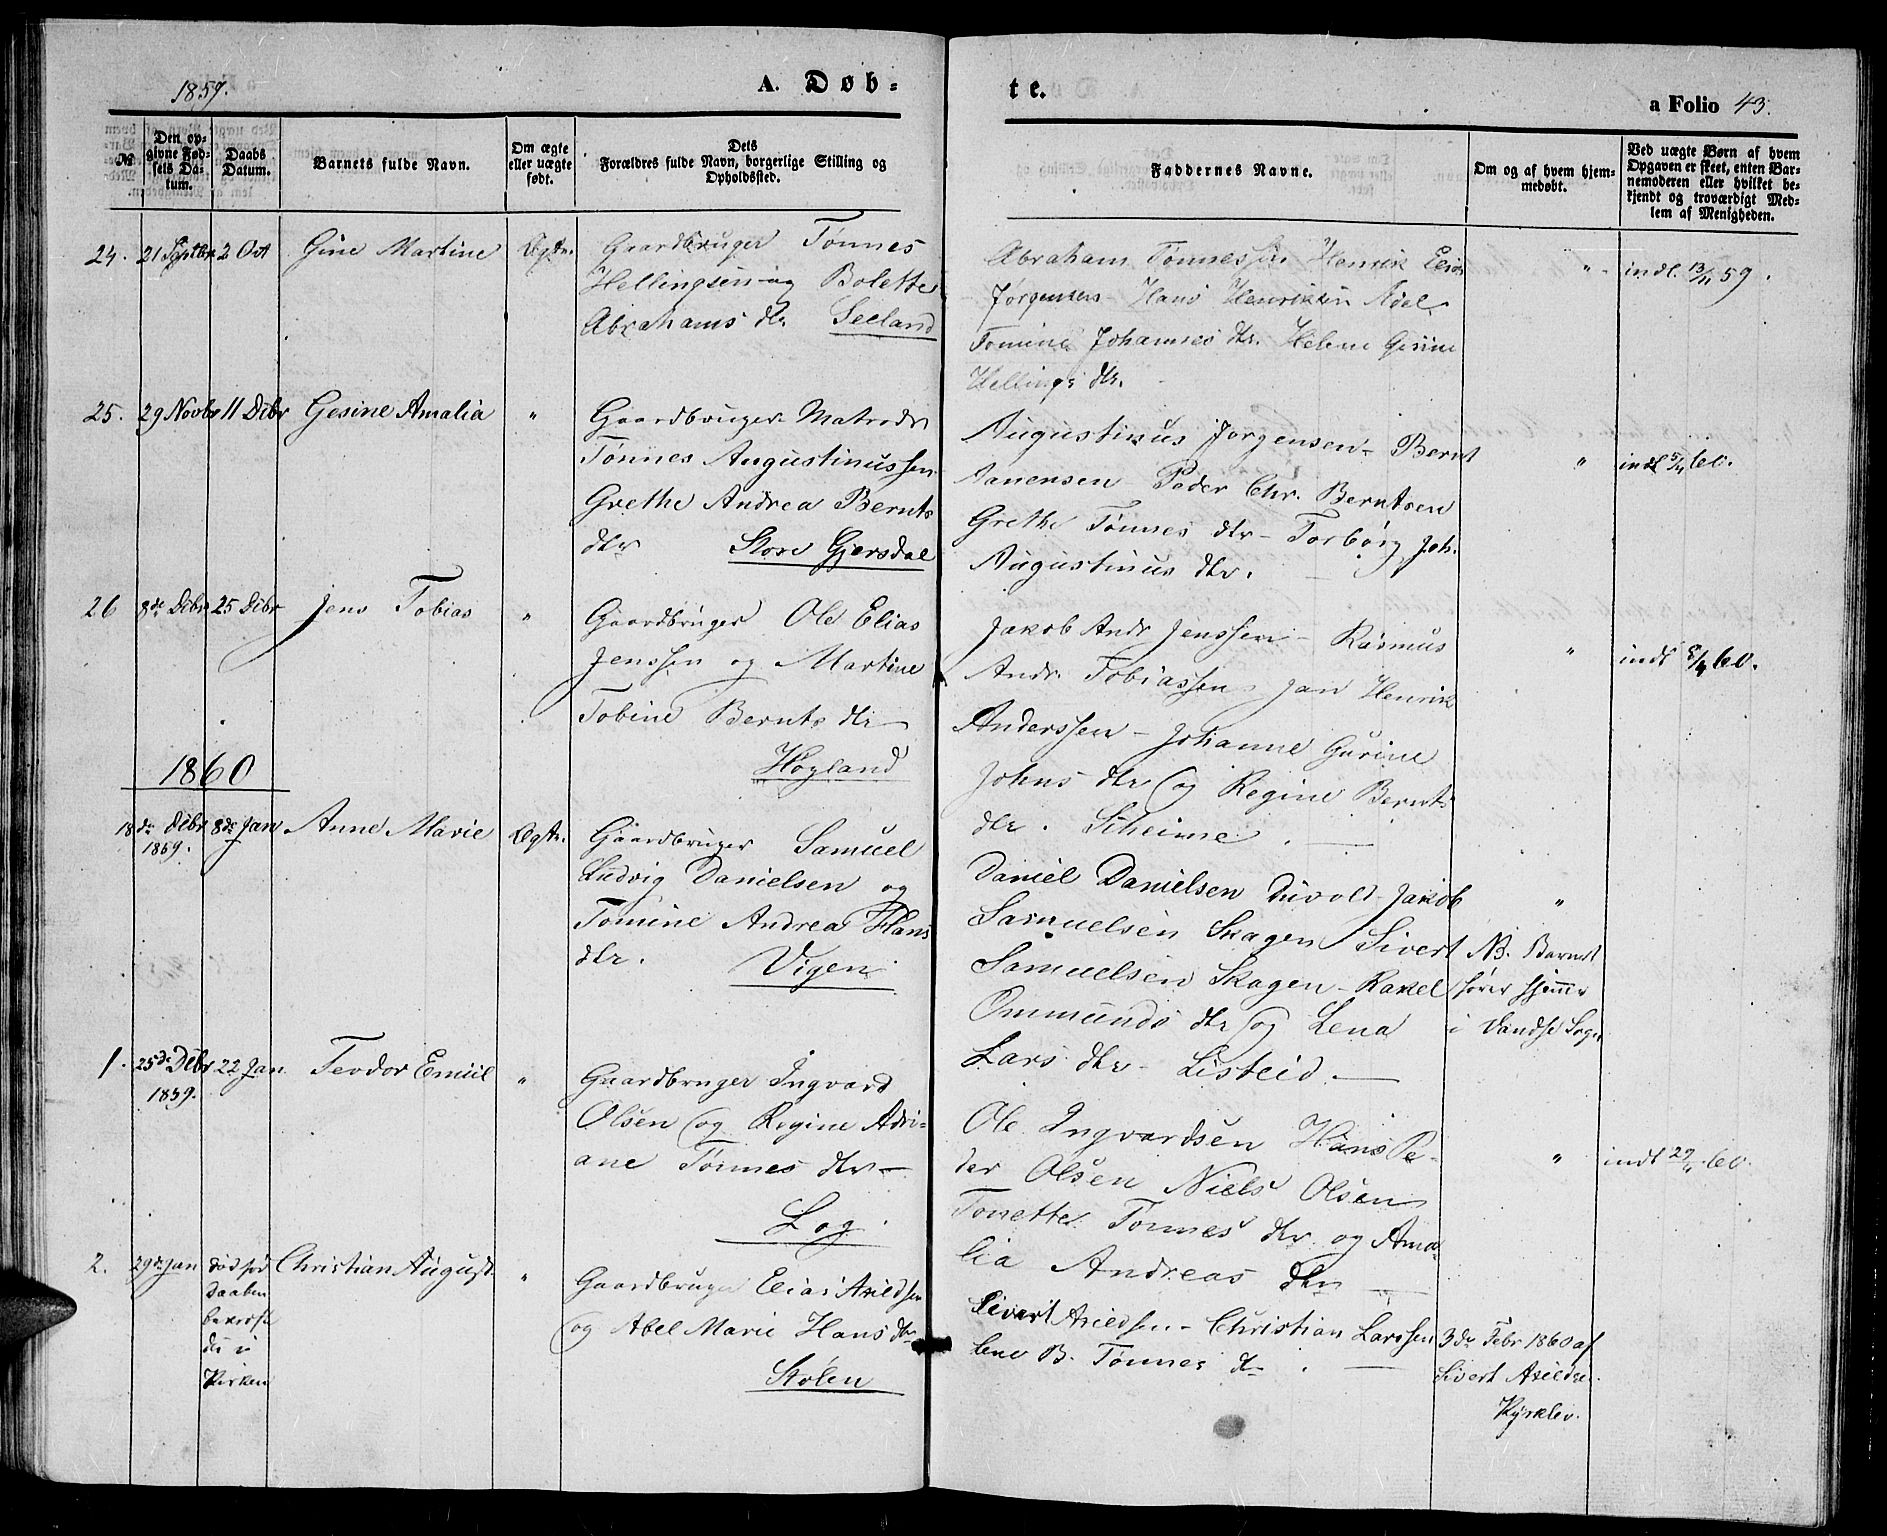 1859.
A. Døb-
te.
a Folio 43.
№
Den op-
givne Fød-
sels Da-
tum.
Daabs
Datum.
Barnets fulde Navn.
Om ægte
eller uægte
født.
Dets
Forældres fulde Navn, borgerlige Stilling og
Opholdssted.
Faddernes Navne.
Om og af hvem hjem-
medøbt.
Ved uægte Børn af hvem
Opgaven er skeet, enten Bar-
nemoderen eller hvilket be-
kjendt og troværdigt Med-
lem af Menigheden.
24. 21 Septbr 2 Oct Gine Martine Ægte.
Gaardbruger Tønnes
Hellingsen og Bolette
Abrahams dtr Seeland
Abraham Tønnessen Henrik Elias
Jørgensen - Hans Henriksen Adel
Tomine Johannes dtr. Helene Gesine
Hellings dtr.
" indl. 13/11 59.
25. 29 Novbr 11 Dcbr Gesine Amalia "
Gaardbruger Matrods
Tønnes Augustinussen
Grethe Andrea Bernts
dtr Store Gjersdal
Augustinus Jørgensen - Bernt
Aanensen Peder Chr. Berntsen
Grethe Tønnes dtr - Torborg Joh.
Augustinus dtr.
" indl 5/4 60.
26 8de Dcbr 25 Dcbr Jens Tobias "
Gaardbruger Ole Elias
Jenssen og Martine
Tobine Bernts dtr
Høyland
Jakob Andr Jenssen - Rasmus
Andr. Tobiassen Jan Henrik
Anderssen - Johanne Gurine
Johns dtr og Regine Bernts
dtr. Scheime.
" indl 8/4 60.
1860
18de Dcbr 8de Jan Anne Marie Ægte.
1859.
Gaardbruger Samuel
Ludvig Danielsen og
Tomine Andrea Hans
dtr. Vigen
Daniel Danielsen Duvold Jakob
Samuelsen Skagen Sivert
Samuelsen Skagen - Rakel
Ommunds dtr og Lena
Lars dtr - Listeid.
"
NB. Barnet
hører hjemme
i Vandse Sogn
1. 25de Dcbr 22 Jan Teodor Emiil "
1859.
Gaardbruger Ingvard
Olsen og Regine Adri-
ane Tønnes dtr
Log.
Ole Ingvardsen Hans Pe-
der Olsen Niels Olsen
Tonette Tønnes dtr og Ama-
lia Andreas dtr
" indl 29/4 60.
2. 29de Jan død før Christian August "
Daaben
bekræfte
des i
Kirken
Gaardbruger Elias Axeldsen
og Abel Marie Hans dtr
Stølen
Sivert Axeldsen - Christian Larssen
Lene B. Tønnes dtr.
3de Febr 1860 af
Sivert Axeldsen